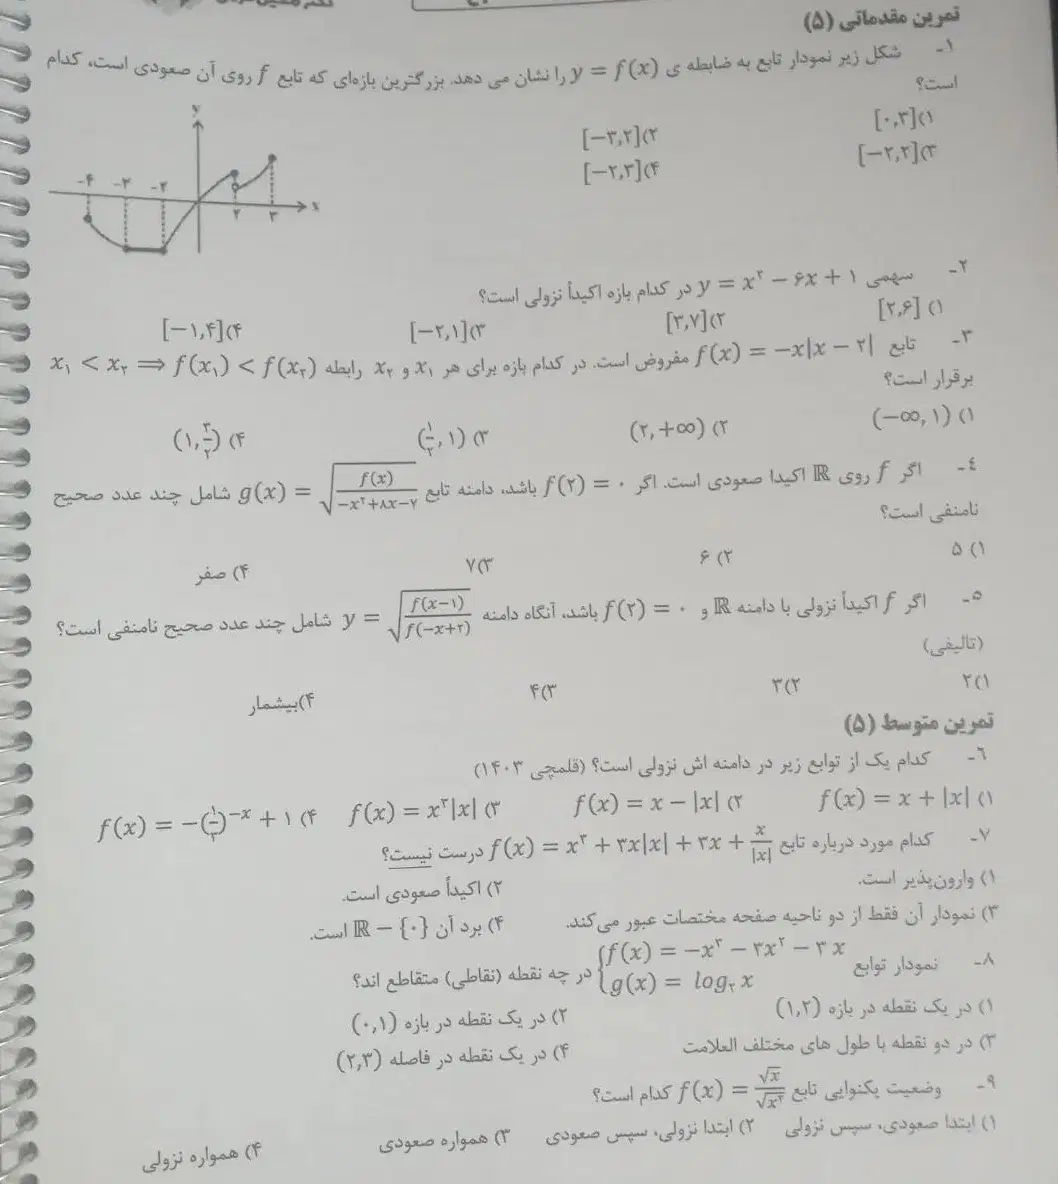 تمرین مقدماتی (۵)
۱- شکل زیر نمودار تابع به ضابطه ی y = f(x) را نشان می دهد. بزرگترین بازه‌ای که تابع f روی آن صعودی است، کدام
است؟
۱) [۰,۳]
۲) [−۳,۲]
۳) [−۲,۲]
۴) [−۲,۳]
y
−۴ −۳ −۲ ۲ ۳ x
۲- سهمی y = x² − ۶x + ۱ در کدام بازه اکیداً نزولی است؟
۱) [۲,۶] ۲) [۳,۷] ۳) [−۲,۱] ۴) [−۱,۴]
۳- تابع f(x) = −x|x − ۲| مفروض است. در کدام بازه برای هر x₁ و x₂ رابطه x₁ < x₂ ⟹ f(x₁) < f(x₂)
برقرار است؟
۱) (−∞, ۱) ۲) (۲, +∞) ۳) (۱/۲, ۱) ۴) (۱, ۳/۲)
٤- اگر f روی ℝ اکیدا صعودی است. اگر f(۲) = ۰ باشد، دامنه تابع g(x) = √(f(x)/(−x²+۸x−۷)) شامل چند عدد صحیح
نامنفی است؟
۱) ۵ ۲) ۶ ۳) ۷ ۴) صفر
۵- اگر f اکیداً نزولی با دامنه ℝ و f(۲) = ۰ باشد، آنگاه دامنه y = √(f(x−۱)/f(−x+۲)) شامل چند عدد صحیح نامنفی است؟
(تالیفی)
۱) ۲ ۲) ۳ ۳) ۴ ۴) بیشمار
تمرین متوسط (۵)
٦- کدام یک از توابع زیر در دامنه اش نزولی است؟ (قلمچی ۱۴۰۳)
۱) f(x) = x + |x| ۲) f(x) = x − |x| ۳) f(x) = x²|x| ۴) f(x) = −(۱/۲)^(−x) + ۱
۷- کدام مورد درباره تابع f(x) = x³ + ۳x|x| + ۳x + x/|x| درست نیست؟
۱) وارون‌پذیر است. ۲) اکیداً صعودی است.
۳) نمودار آن فقط از دو ناحیه صفحه مختصات عبور می‌کند. ۴) برد آن ℝ − {۰} است.
۸- نمودار توابع {f(x) = −x³ − ۳x² − ۳ x
g(x) = log₂ x در چه نقطه (نقاطی) متقاطع اند؟
۱) در یک نقطه در بازه (۱,۲) ۲) در یک نقطه در بازه (۰,۱)
۳) در دو نقطه با طول های مختلف العلامت ۴) در یک نقطه در فاصله (۲,۳)
۹- وضعیت یکنوایی تابع f(x) = √x/√x² کدام است؟
۱) ابتدا صعودی، سپس نزولی ۲) ابتدا نزولی، سپس صعودی ۳) همواره صعودی ۴) همواره نزولی